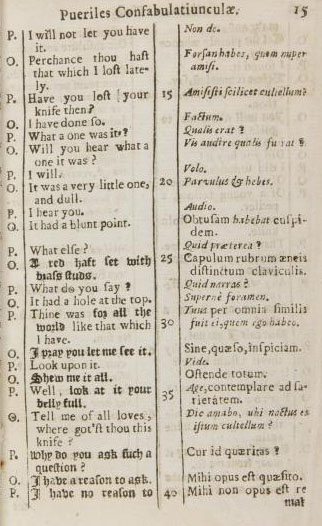 Pueriles Confabulatiunculæ. 15
P. I will not let you have
it.
O. Perchance thou hast
that which I lost late-
ly.
P. Have you lost your
knife then?
O. I have done so.
P. What a one was it?
O. Will you hear what a
one it was?
P. I will.
O. It was a very little one,
and dull.
P. I hear you.
O. It had a blunt point.
P. What else?
O. A red haft set with
brass studs.
P. What do you say?
O. It had a hole at the top.
P. Thine was for all the
world like that which
I have.
O. I pray you let me see it.
P. Look upon it.
O. Shew me it all.
P. Well, look at it your
belly full.
O. Tell me of all loves,
where got'st thou this
knife?
P. Why do you ask such a
question?
O. I have a reason to ask.
P. I have no reason to
Non do.
Forsan habes, quem nuper
amisi.
15 Amisisti scilicet cultellum?
Factum.
Qualis erat?
Vis audire qualis fuerat?
Volo.
20 Parvulus & hebes.
Audio.
Obtusam habebat cuspi-
dem.
Quid præterea?
25 Capulum rubrum æneis
distinctum claviculis.
Quid narras?
Supernè foramen.
Tuus per omnia similis
30 fuit ei, quem ego habeo.
Sine, quæso, inspiciam.
Vide.
Ostende totum.
Age, contemplare ad sa-
35 tietatem.
Dic amabo, ubi nactus es
istum cultellum?
Cur id quæritas?
Mihi opus est quæsito.
40 Mihi non opus est re
mat